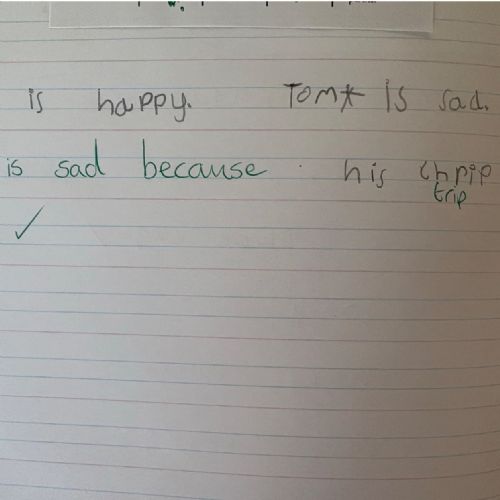 is happy. Tom* is sad.
is sad because his chrip
trip